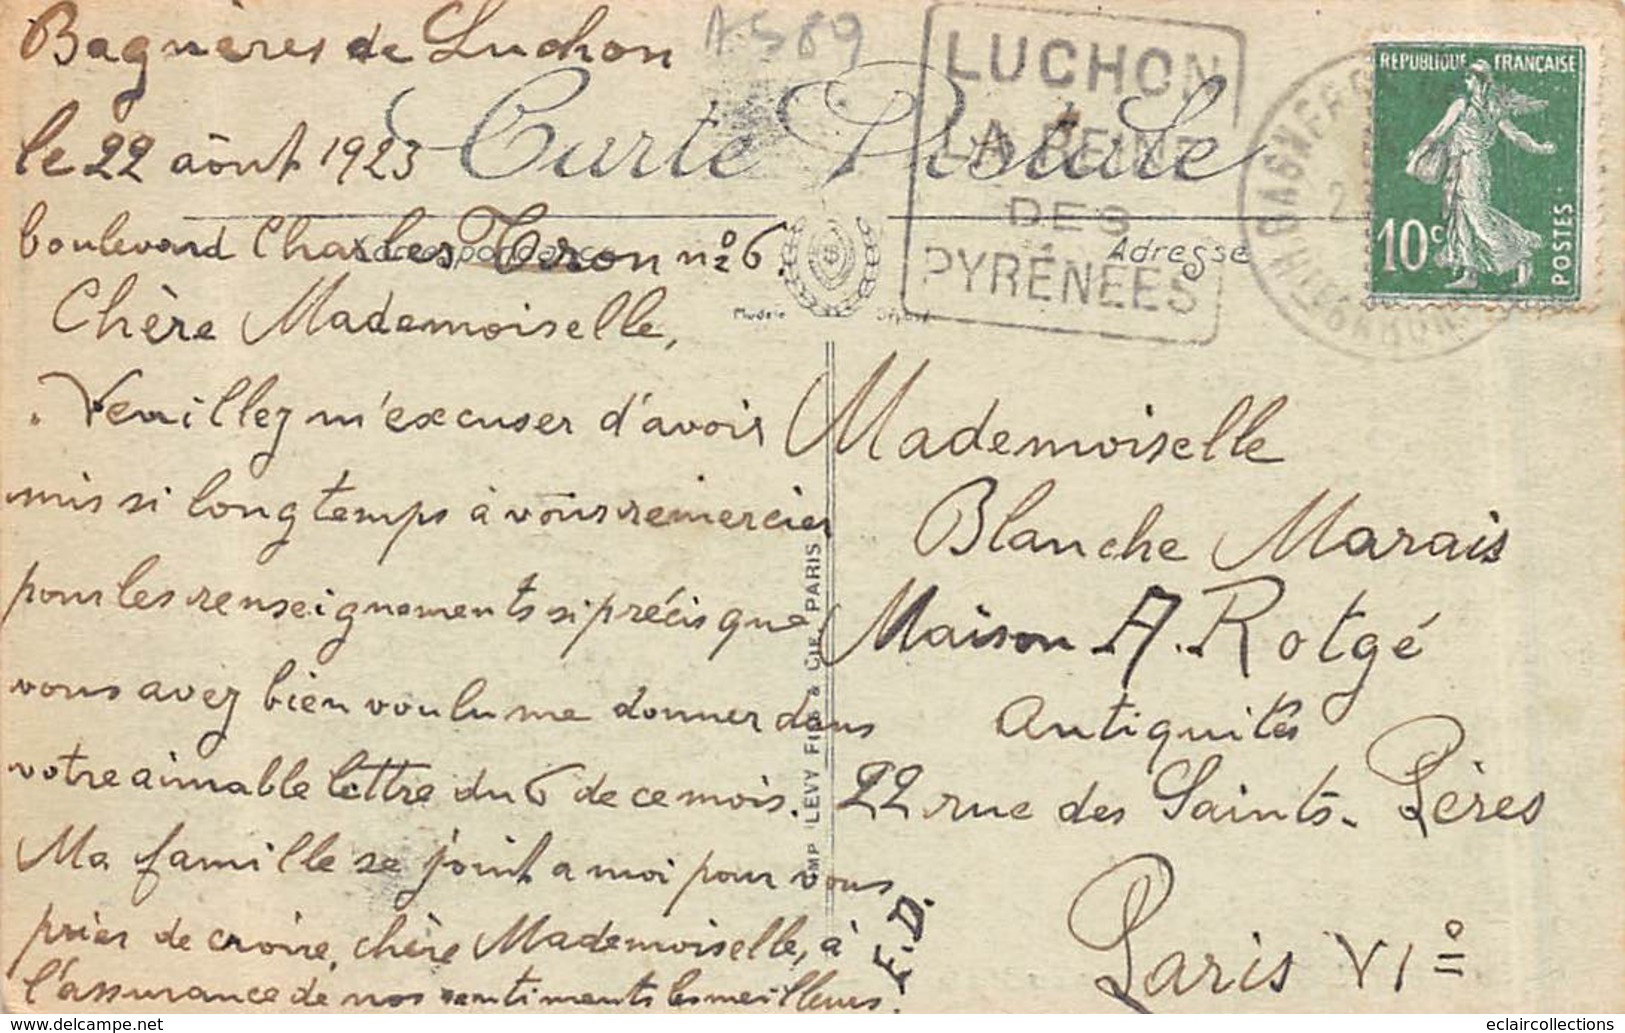 Bagnères de Luchon
le 22 aôut 1923
boulevard Charles Tron nº 6.
Chère Mademoiselle,
Veuillez m'excuser d'avoir
mis si longtemps à vous remercier
pour les renseignements si précis que
vous avez bien voulu me donner dans
votre aimable lettre du 6 de ce mois.
Ma famille se joint a moi pour vous
prier de croire, chère Mademoiselle, à
l'assurance de nos sentiments les meilleurs.
F.D.
A589
Carte Postale
Correspondance
Adresse
Modèle Déposé
IMP LEVY FILS & CIE PARIS
LUCHON
LA REINE
DES
PYRÉNÉES
RÉPUBLIQUE FRANÇAISE
10c
POSTES
Mademoiselle
Blanche Marais
Maison A. Rotgé
Antiquités
22 rue des Saints-Pères
Paris VIº
eclaircollections